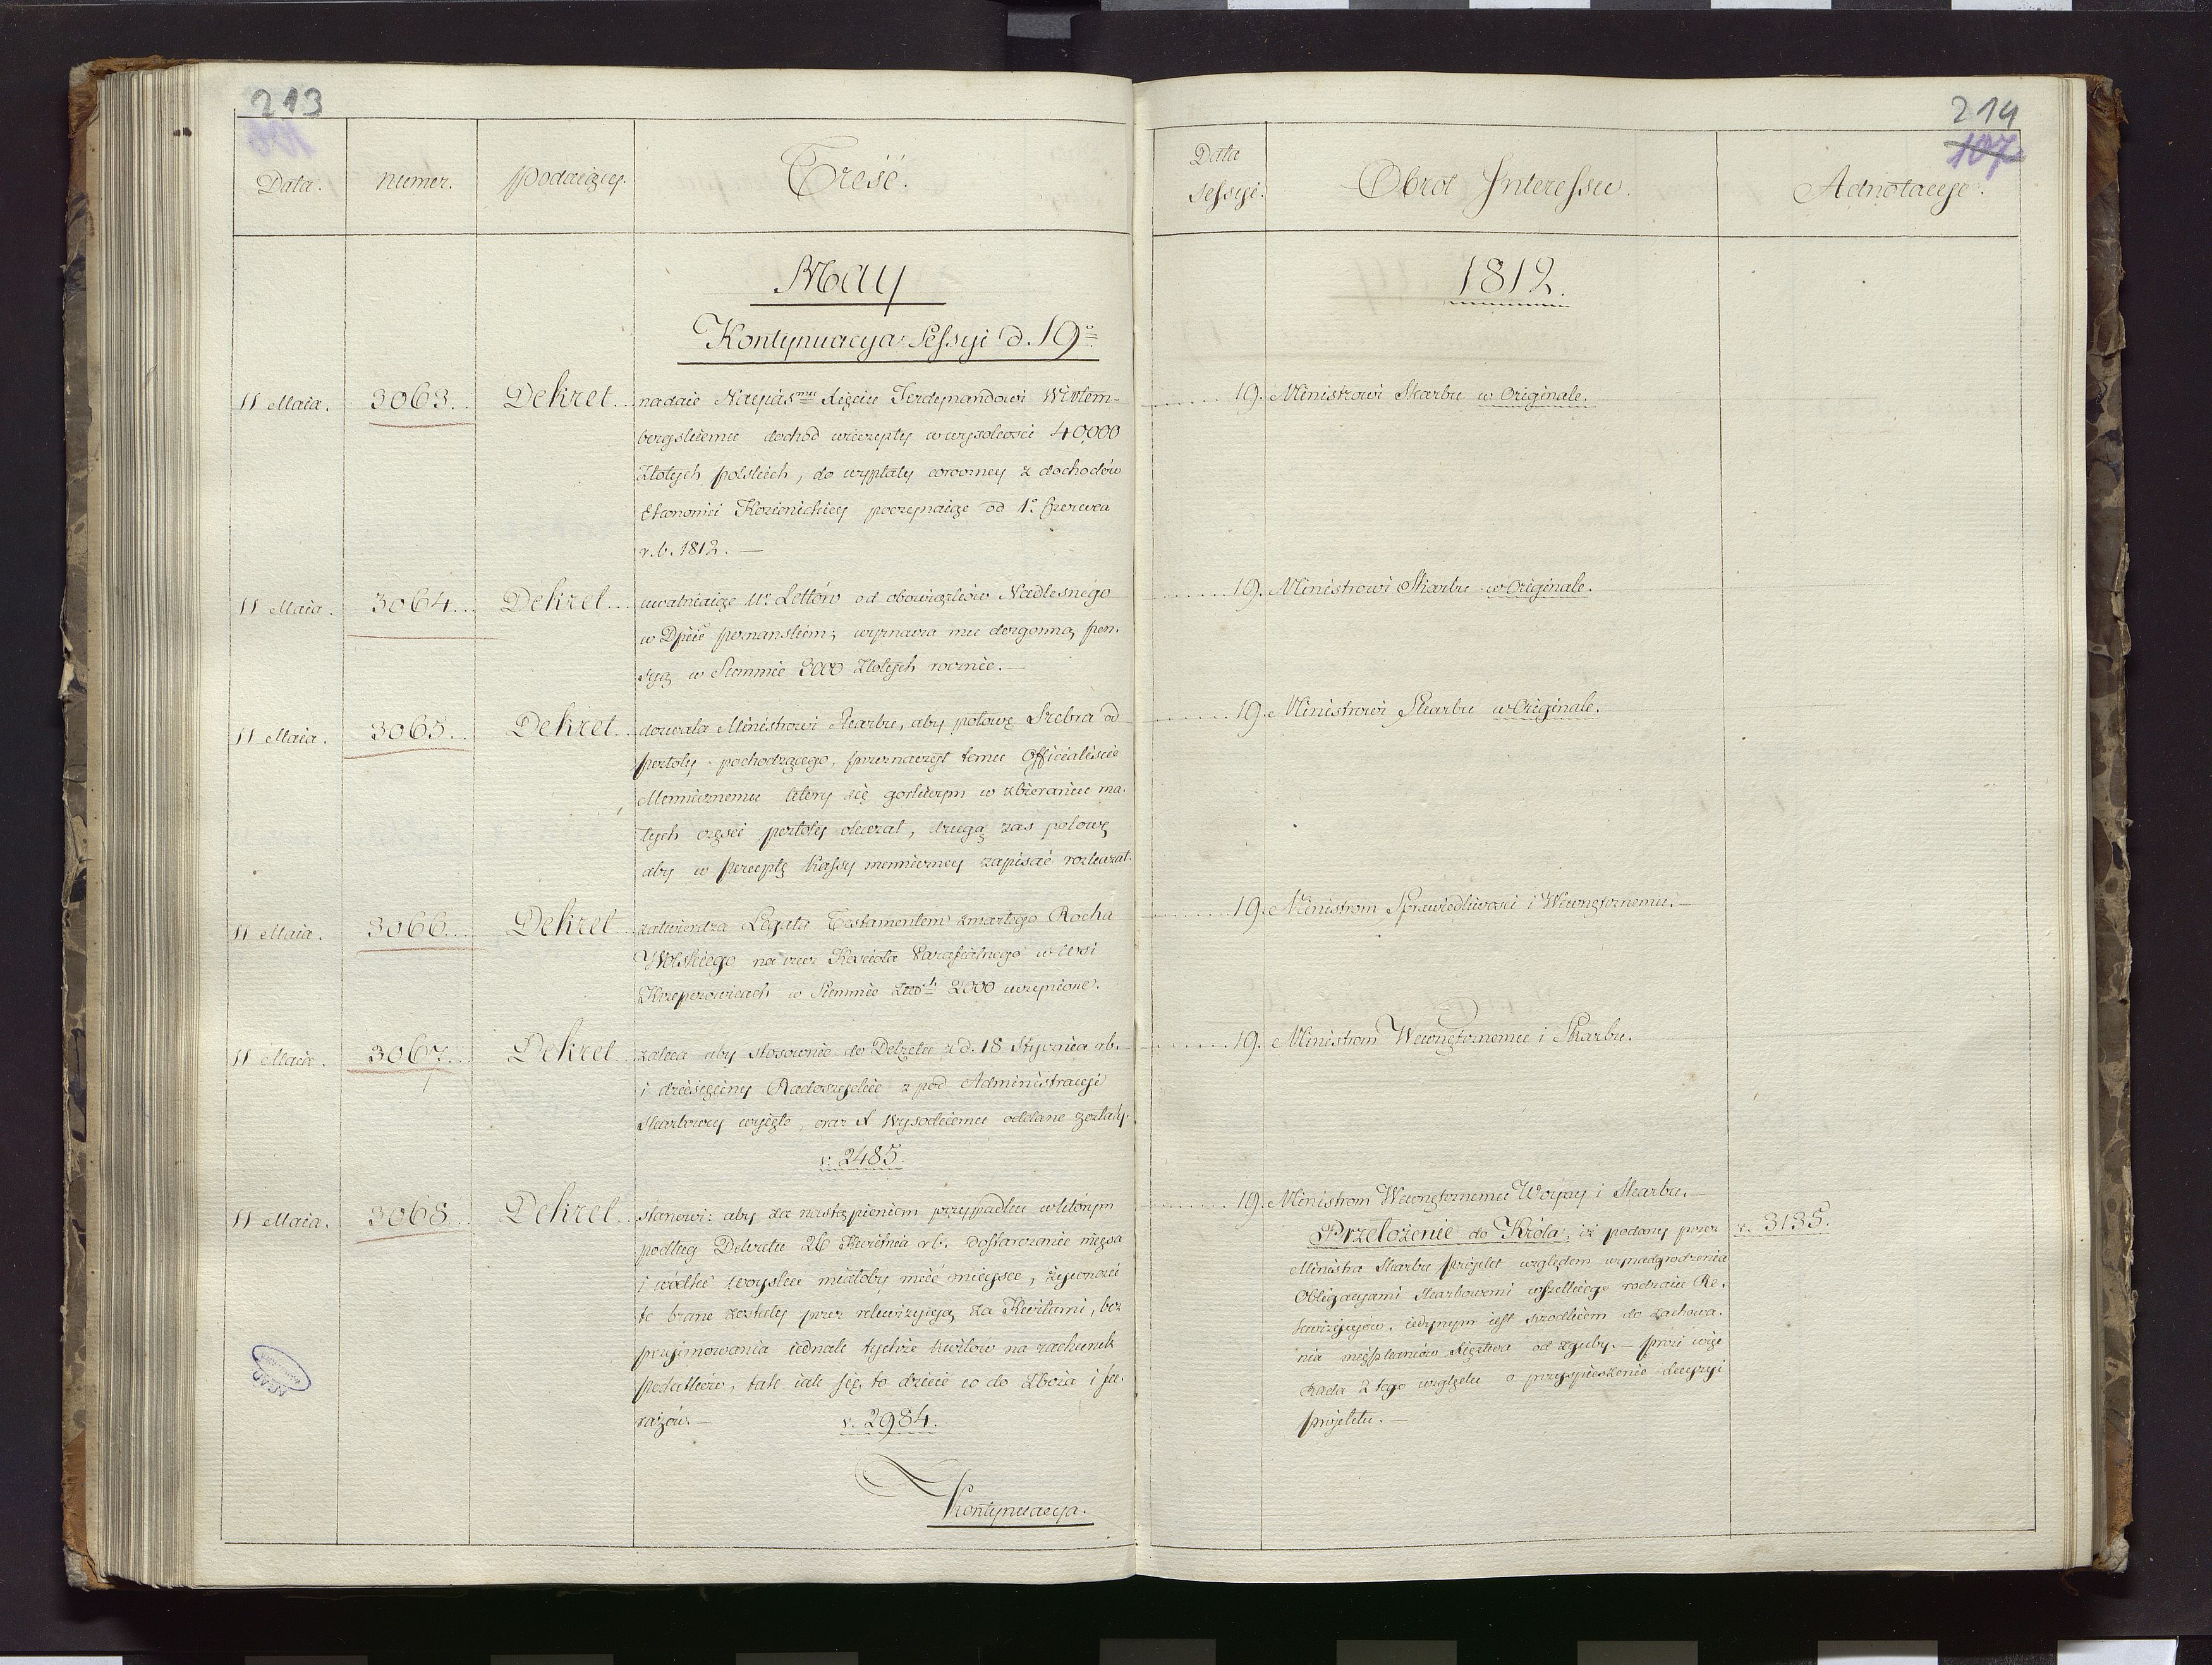 213
106
Data.
Numer.
Podaiący.
Treść.
May
Kontynuacya Sessyi d. 19º
11 Maia.
3063.
Dekret
nadaie Nayiaśmu Xięciu Ferdynandowi Wirtem-
bergskiemu dochod wieczysty w wysokości 40,000
Złotych polskich, do wypłaty coroczney z dochodów
Ekonomii Kozienickiey poczynaiąc od 1º Czerwca
r. b. 1812. —
11 Maia.
3064.
Dekret
uwalniaiąc Ur. Lettów od obowiązków Nadlesnego
w Dpcie poznanskim; wyznacza mu dozgonną pen-
syą w Summie 2000 Złotych rocznie. —
11 Maia.
3065.
Dekret
dozwala Ministrowi Skarbu, aby połowę Srebra od
pochodzącego, przeznaczył temu Officialiscie
Menniczemu ktory się gorliwym w zbieraniu ma-
łych części okazał, drugą zas połowę
aby w perceptę Kassy menniczney zapisać rozkazał.
11 Maia.
3066.
Dekret
zatwierdza Legata Testamentem zmarłego Rocha
Wolskiego na rzecz Kościoła Parafialnego w wsi
w Summie 2000 uczynione.
11 Maia.
3067.
Dekret
zaleca aby stosownie do Dekretu z d. 18 Stycznia r b.
i dziesięciny Radoszyckie z pod Administracyi
Skarbowey wyięte, oraz X Wysockiemu oddane zostały.
v. 2485.
11 Maia.
3068.
Dekret
stanowi: aby za nastąpieniem przypadku w którym
podług Dekretu 26 Kwietnia r b. dostarczanie mięsa
i wodki woysku miałoby mieć mieysce, żywnosci
te brane zostały przez rekwizycyą za Kwitami, bez
przyimowania iednak tychże kwitów na rachunek
podatków, tak iak się to dzieie co do Zboża i fu-
rażów. — v. 2984.
Kontynuacya.
214
107
Data
Sessyi.
Obrot Interessu.
Adnotacye.
1812.
19. Ministrowi Skarbu w Originale.
19. Ministrowi Skarbu w Originale.
19. Ministrowi Skarbu w Originale.
19. Ministrom Sprawiedliwosci i Wewnętrznemu. —
19. Ministrom Wewnętrznemu i Skarbu.
19. Ministrom Wewnętrznemu Woyny i Skarbu. —
Przełożenie do Króla, iż podany przez
v. 3135.
Ministra Skarbu proiekt względem wynadgrodzenia
Obligacyami Skarbowemi wszelkiego rodzaiu Re-
kwizycyów, iedynym iest srzodkiem do zachowa-
nia mieszkanców Xięstwa od zguby. — prosi więc
Rada z tego względu o przyspieszenie decyzyi
proiektu. —